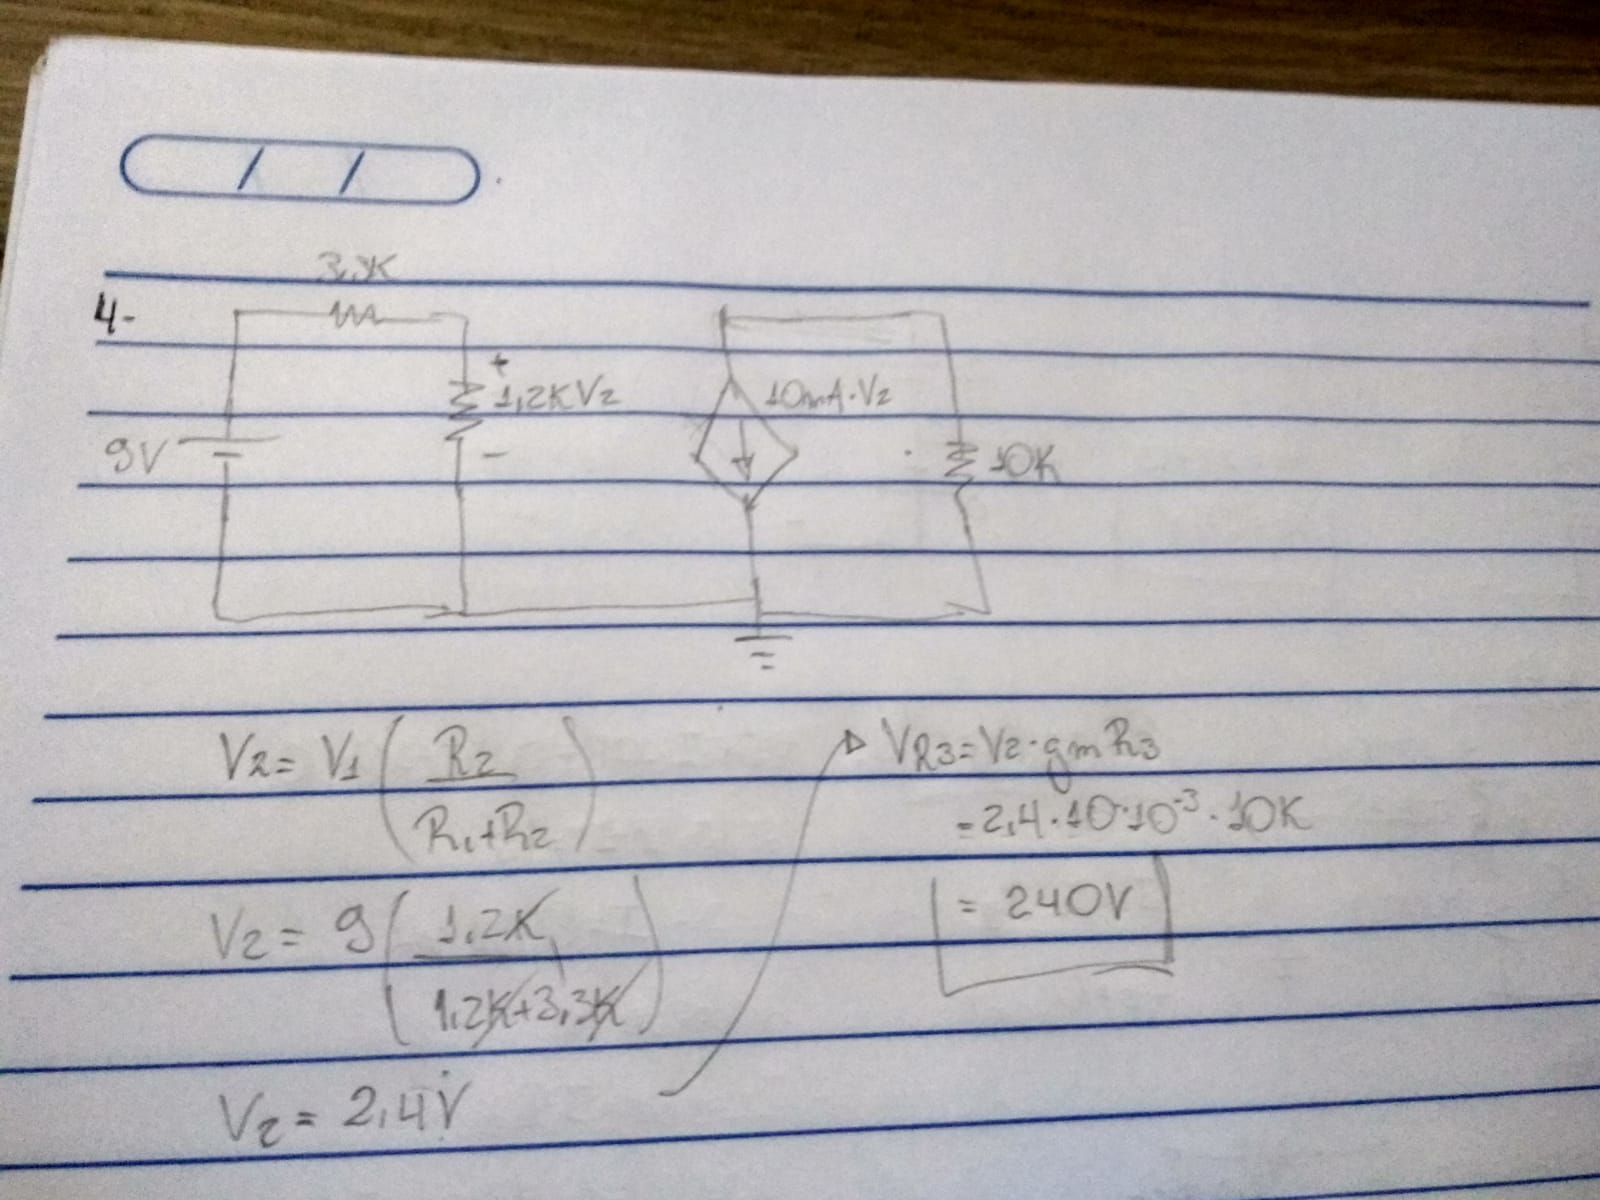 / /
3,3K
4-
+
1,2K V2
10mA·V2
9V
-
10K
V2 = V1 ( R2 / R1+R2 )
V2 = 9 ( 1,2K / 1,2K+3,3K )
V2 = 2,4V
VR3 = V2·gm R3
= 2,4·10·10-3·10K
= 240V